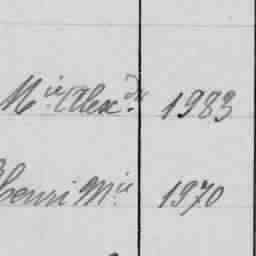 Mie Alexdre 1983
Henri Mie 1970